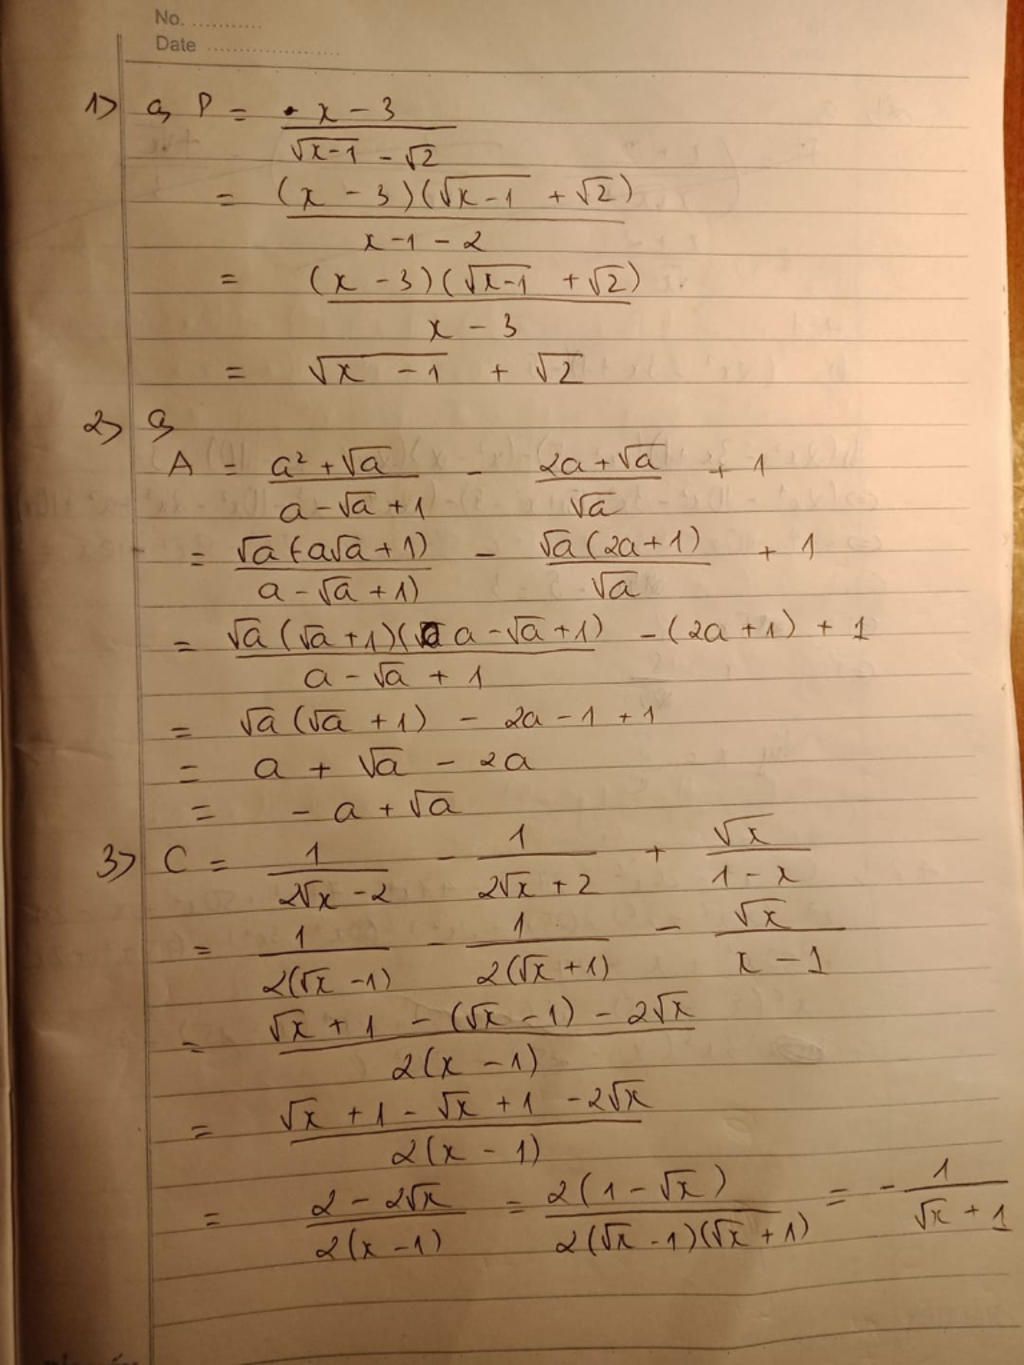 No. ............
Date ......................
1> a, P = x - 3 / √(x-1) - √2
= (x - 3)(√(x-1) + √2) / x-1-2
= (x - 3)(√(x-1) + √2) / x - 3
= √(x - 1) + √2
2> a,
A = a² + √a / a - √a + 1 - 2a + √a / √a + 1
= √a (a√a + 1) / a - √a + 1) - √a (2a+1) / √a + 1
= √a (√a + 1)(a - √a + 1) / a - √a + 1 - (2a + 1) + 1
= √a (√a + 1) - 2a - 1 + 1
= a + √a - 2a
= - a + √a
3> C = 1 / 2√x - 2 - 1 / 2√x + 2 + √x / 1 - x
= 1 / 2(√x - 1) - 1 / 2(√x + 1) - √x / x - 1
= √x + 1 - (√x - 1) - 2√x / 2(x - 1)
= √x + 1 - √x + 1 - 2√x / 2(x - 1)
= 2 - 2√x / 2(x - 1) = 2(1 - √x) / 2(√x - 1)(√x + 1) = - 1 / √x + 1